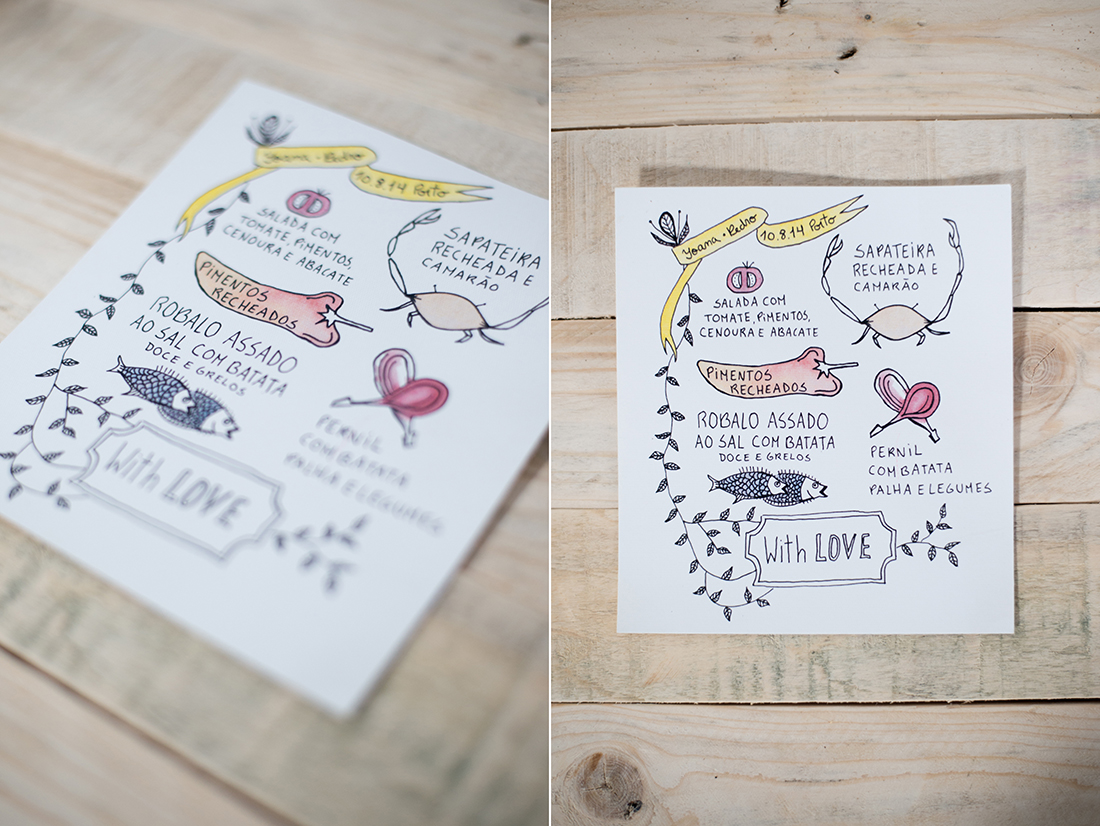 Yoana • Pedro
10.8.14 Porto
SALADA COM
TOMATE, PIMENTOS
CENOURA E ABACATE
SAPATEIRA
RECHEADA E
CAMARÃO
PIMENTOS
RECHEADOS
ROBALO ASSADO
AO SAL COM BATATA
DOCE E GRELOS
PERNIL
COM BATATA
PALHA E LEGUMES
With LOVE
Yoana • Pedro
10.8.14 Porto
SALADA COM
TOMATE, PIMENTOS,
CENOURA E ABACATE
SAPATEIRA
RECHEADA E
CAMARÃO
PIMENTOS
RECHEADOS
ROBALO ASSADO
AO SAL COM BATATA
DOCE E GRELOS
PERNIL
COM BATATA
PALHA E LEGUMES
With LOVE